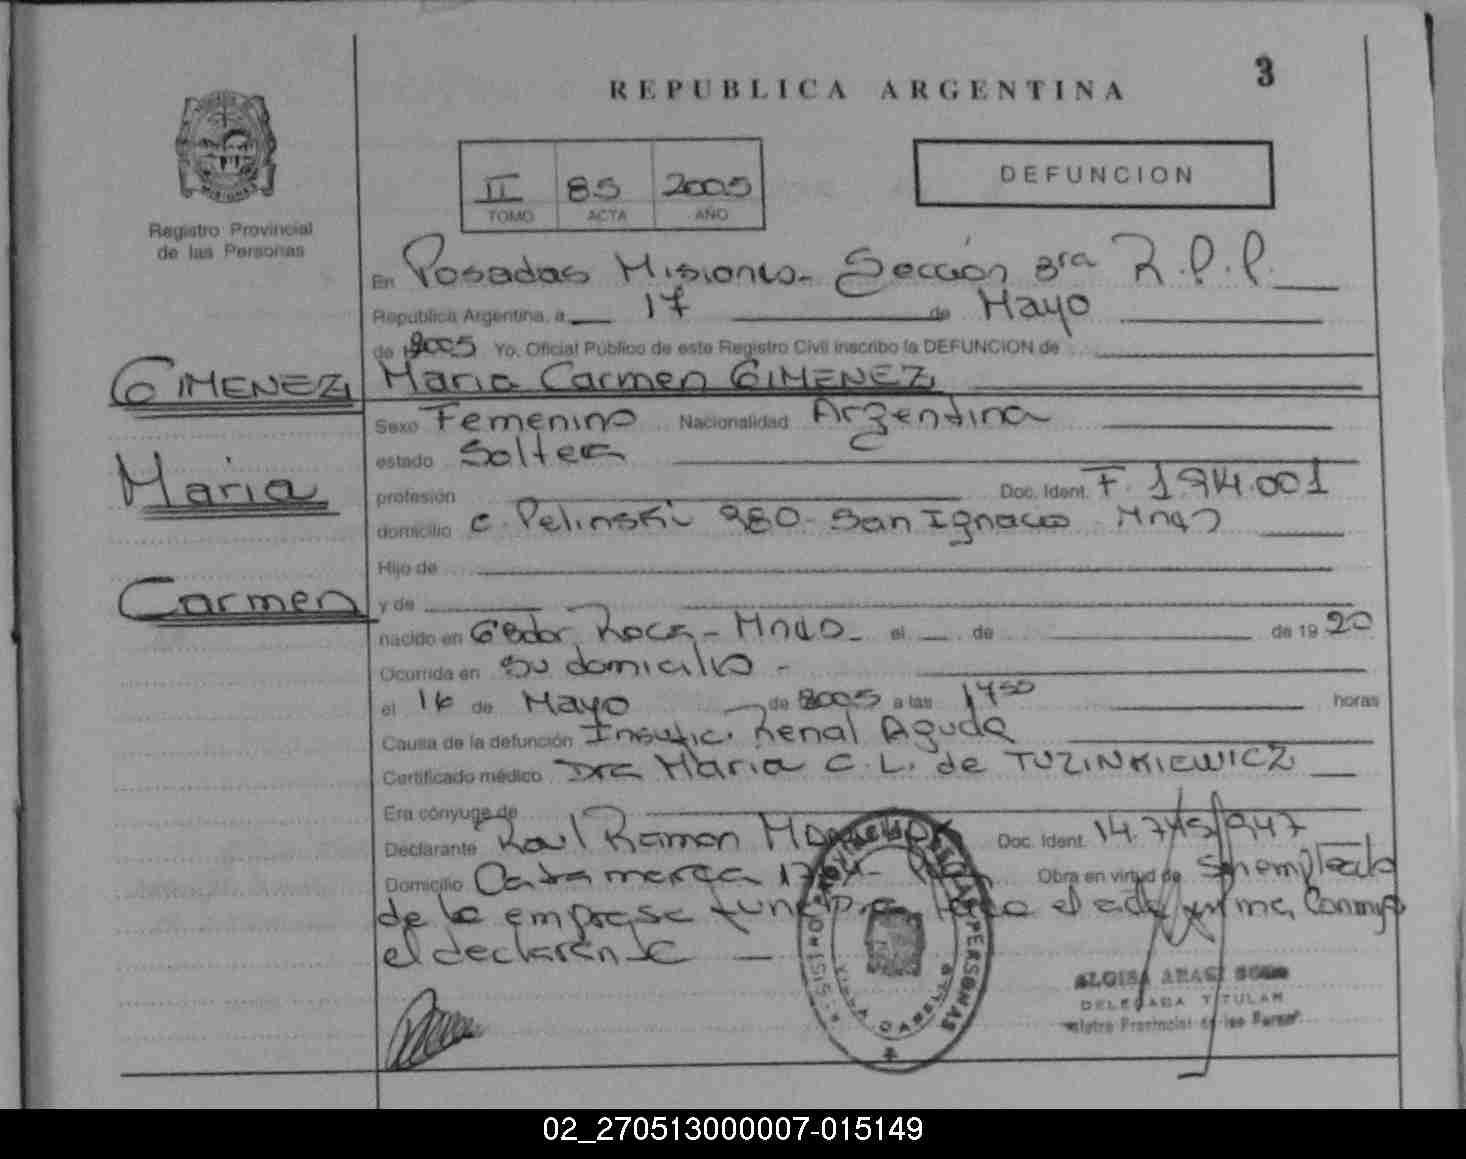 3
REPUBLICA ARGENTINA
II 85 2005
TOMO ACTA AÑO
DEFUNCION
Registro Provincial
de las Personas
En Posadas Misiones - Sección 3ra R.P.P.
Republica Argentina, a 17 de Mayo
de 2005 Yo, Oficial Público de este Registro Civil inscribo la DEFUNCION de
GIMENEZ Maria Carmen GIMENEZ
Sexo Femenino Nacionalidad Argentina
estado Soltera
Maria
profesión Doc. Ident. F. 1.914.001
domicilio C. Pelinski 980 - San Ignacio Mnes
Hijo de
Carmen
y de
nacido en Gdor Roca - Mnes - el de de 1920
Ocurrida en Su domicilio -
el 16 de Mayo de 2005 a las 17 50 horas
Causa de la defunción Insufic. Renal Aguda
Certificado médico Dra Maria C. L. de TUZINKIEWICZ
Era cónyuge de
Declarante Raul Ramon Doc. Ident. 14.745.947
Domicilio Catamarca Obra en virtud de Ser empleado
de la empresa el acta firma Conmigo
el declarante
REGISTRO PROVINCIAL DE LAS PERSONAS
DELEGADA TITULAR
Registro Provincial de las Personas
02_270513000007-015149